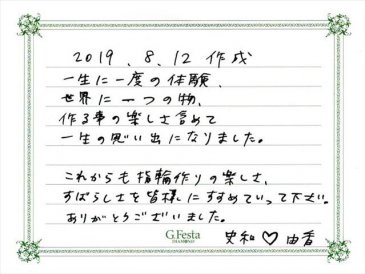 2019.8.12 作成
一生に一度の体験、
世界に一つの物、
作る事の楽しさ含めて
一生の思い出になりました。
これからも指輪作りの楽しさ、
すばらしさを皆様にすすめていって下さい。
ありがとうございました。
G.Festa
DIAMOND
史和♡由香